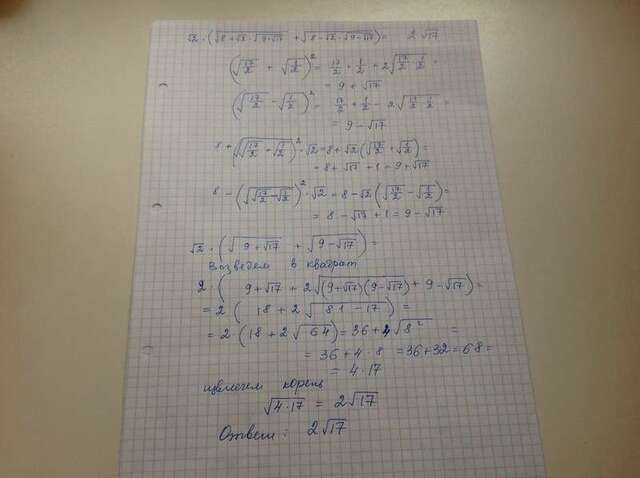 √2 · (√(8+√2·√(9+√17)) + √(8-√2·√(9-√17))) = 2√17
(√(17/2) + √(1/2))² = 17/2 + 1/2 + 2√(17/2 · 1/2) =
= 9 + √17
(√(17/2) - √(1/2))² = 17/2 + 1/2 - 2√(17/2 · 1/2) =
= 9 - √17
8 + (√(√(17/2) + √(1/2)))² · √2 = 8 + √2(√(17/2) + √(1/2)) =
= 8 + √17 + 1 = 9 + √17
8 - (√(√(17/2) - √(1/2)))² · √2 = 8 - √2(√(17/2) - √(1/2)) =
= 8 - √17 + 1 = 9 - √17
√2 · (√(9+√17) + √(9-√17)) =
Возведем в квадрат
2 · (9+√17 + 2√((9+√17)(9-√17)) + 9-√17) =
= 2(18 + 2√(81-17)) =
= 2·(18 + 2√64) = 36 + 4√8² =
= 36 + 4·8 = 36+32 = 68 =
= 4·17
извлечем корень
√(4·17) = 2√17
Ответ: 2√17